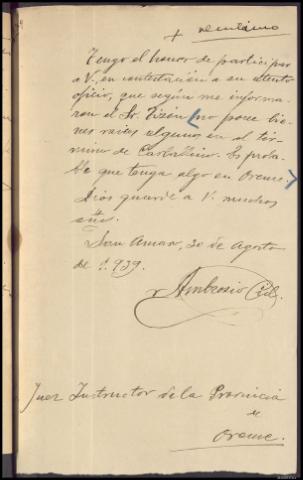 Tengo el honor de participar
a V, en contestación a su atento
oficio, que según me informa-
ron el Sr. no posee bie-
nes raices algunos en el tér-
mino de Carballino. Es proba-
ble que tenga algo en Orense.
Dios guarde a V. muchos
años.
San Amaro, 30 de Agosto
de 1.939.
Ambrosio Cid
Juez Instructor de la Provincia
de
Orense.